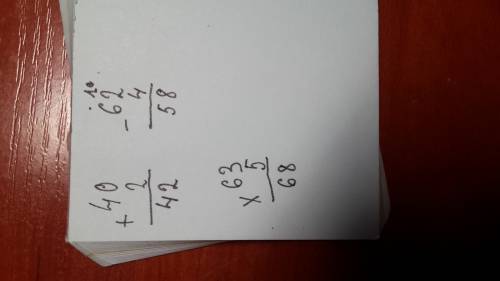 + 40
2
42
. 10
- 62
4
58
x 63
5
68